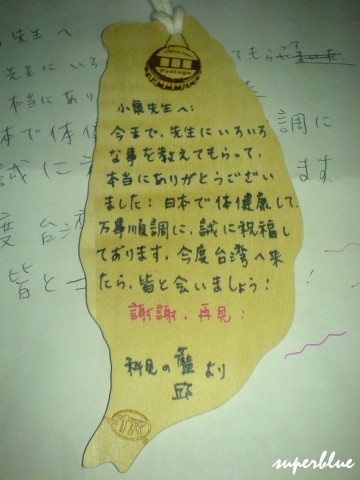 先生へ
先生にいろ
てもらって
本当にあり
本で体
調に
誠に
ます
度台湾
皆と一
Postage
小巢先生へ:
今まで,先生にいろいろ
な事を教えてもらって,
本当にありがとうござい
ました!日本で体健康して,
万事順調に,誠に祝福し
ております。今度台湾へ来
たら,皆と会いましょう!
謝謝,再見!
科見の藍より
邱
superblue